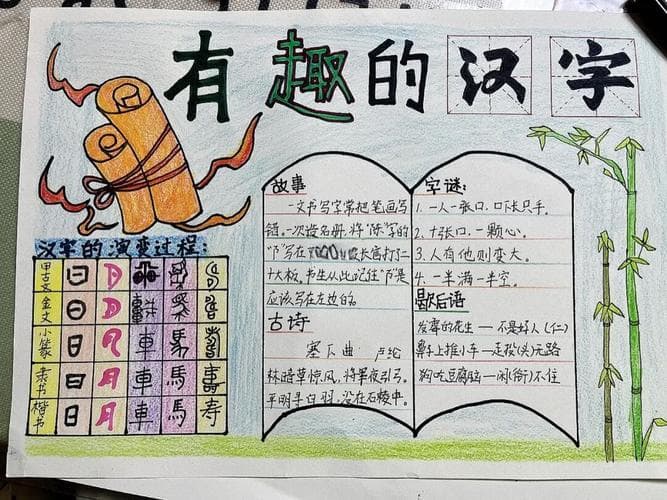 有趣的汉字
汉字的演变过程:
甲古文
金文
小篆
隶书 日 月 車 馬 壽
楷书 日 月 車 馬 孝
故事
一文书写字常把笔画写
错,一次造名册,将"陈"字的
"阝"写在 长官打二
十大板。书生从此记住"阝"是
应该写在左边的。
古诗
塞下曲 卢纶
林暗草惊风,将军夜引弓。
平明寻白羽,没在石棱中。
字谜:
1. 一人一张口,口下长只手。
2. 十张口,一颗心。
3. 人有他则变大。
4. 一半满一半空。
歇后语
发霉的花生一不是好人(仁)
鼻子上推小车一走投(头)无路
狗吃豆腐脑一闲(衔)不住